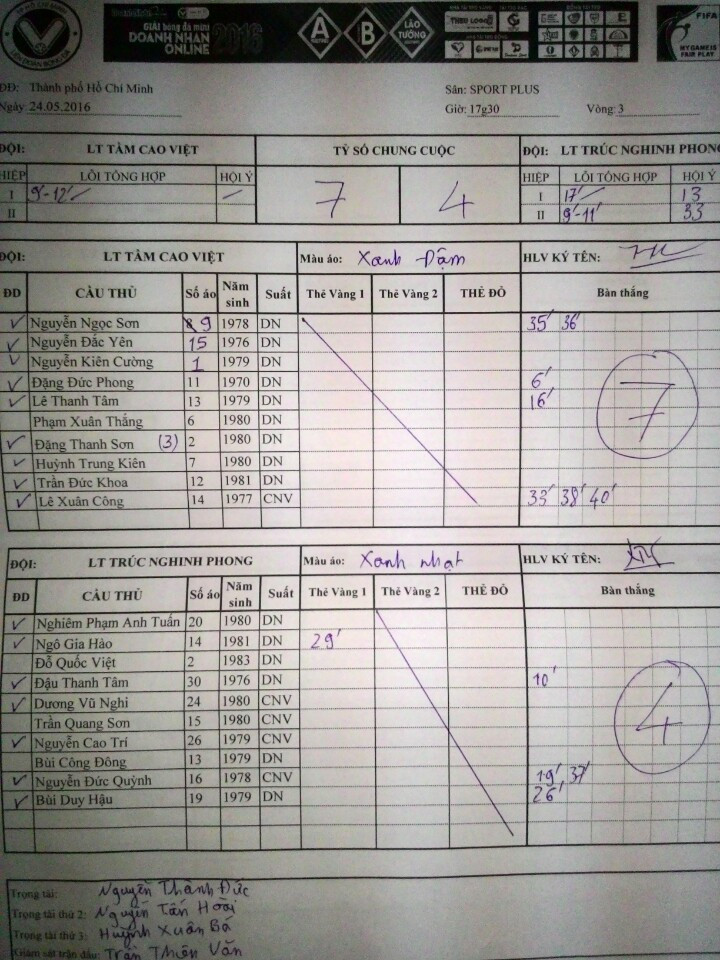 TP HỒ CHÍ MINH
LIÊN ĐOÀN BÓNG ĐÁ
GIẢI bóng đá mini
DOANH NHÂN
ONLINE 2016
A
B
LÃO TƯỚNG
FIFA
MY GAME IS
FAIR PLAY
ĐĐ: Thành phố Hồ Chí Minh Sân: SPORT PLUS
Ngày 24.05.2016 Giờ: 17g30 Vòng: 3
ĐỘI: LT TÂM CAO VIỆT TỶ SỐ CHUNG CUỘC ĐỘI: LT TRÚC NGHINH PHONG
HIỆP LỖI TỔNG HỢP HỘI Ý 7 4 HIỆP LỖI TỔNG HỢP HỘI Ý
I 9'-12' I 17' 13
II II 9'-11' 33
ĐỘI: LT TÂM CAO VIỆT Màu áo: Xanh Đậm HLV KÝ TÊN:
ĐD CẦU THỦ Số áo Năm sinh Suất Thẻ Vàng 1 Thẻ Vàng 2 THẺ ĐỎ Bàn thắng
Nguyễn Ngọc Sơn 9 1978 DN 35' 36'
Nguyễn Đắc Yên 15 1976 DN
Nguyễn Kiên Cường 1 1979 DN
Đặng Đức Phong 11 1970 DN 6'
Lê Thanh Tâm 13 1979 DN 16' 7
Phạm Xuân Thắng 6 1980 DN
Đặng Thanh Sơn (3) 2 1980 DN
Huỳnh Trung Kiên 7 1980 DN
Trần Đức Khoa 12 1981 DN
Lê Xuân Công 14 1977 CNV 33' 38' 40'
ĐỘI: LT TRÚC NGHINH PHONG Màu áo: Xanh nhạt HLV KÝ TÊN:
ĐD CẦU THỦ Số áo Năm sinh Suất Thẻ Vàng 1 Thẻ Vàng 2 THẺ ĐỎ Bàn thắng
Nghiêm Phạm Anh Tuấn 20 1980 DN
Ngô Gia Hào 14 1981 DN 29'
Đỗ Quốc Việt 2 1983 DN
Đậu Thanh Tâm 30 1976 DN 10'
Dương Vũ Nghi 24 1980 CNV 4
Trần Quang Sơn 15 1980 CNV
Nguyễn Cao Trí 26 1979 CNV
Bùi Công Đông 13 1979 DN
Nguyễn Đức Quỳnh 16 1978 CNV 19', 37'
Bùi Duy Hậu 19 1979 DN 26'
Trọng tài: Nguyễn Thành Đức
Trọng tài thứ 2: Nguyễn Tấn Hoài
Trọng tài thứ 3: Huỳnh Xuân Bá
Giám sát trận đấu: Trần Thiên Văn